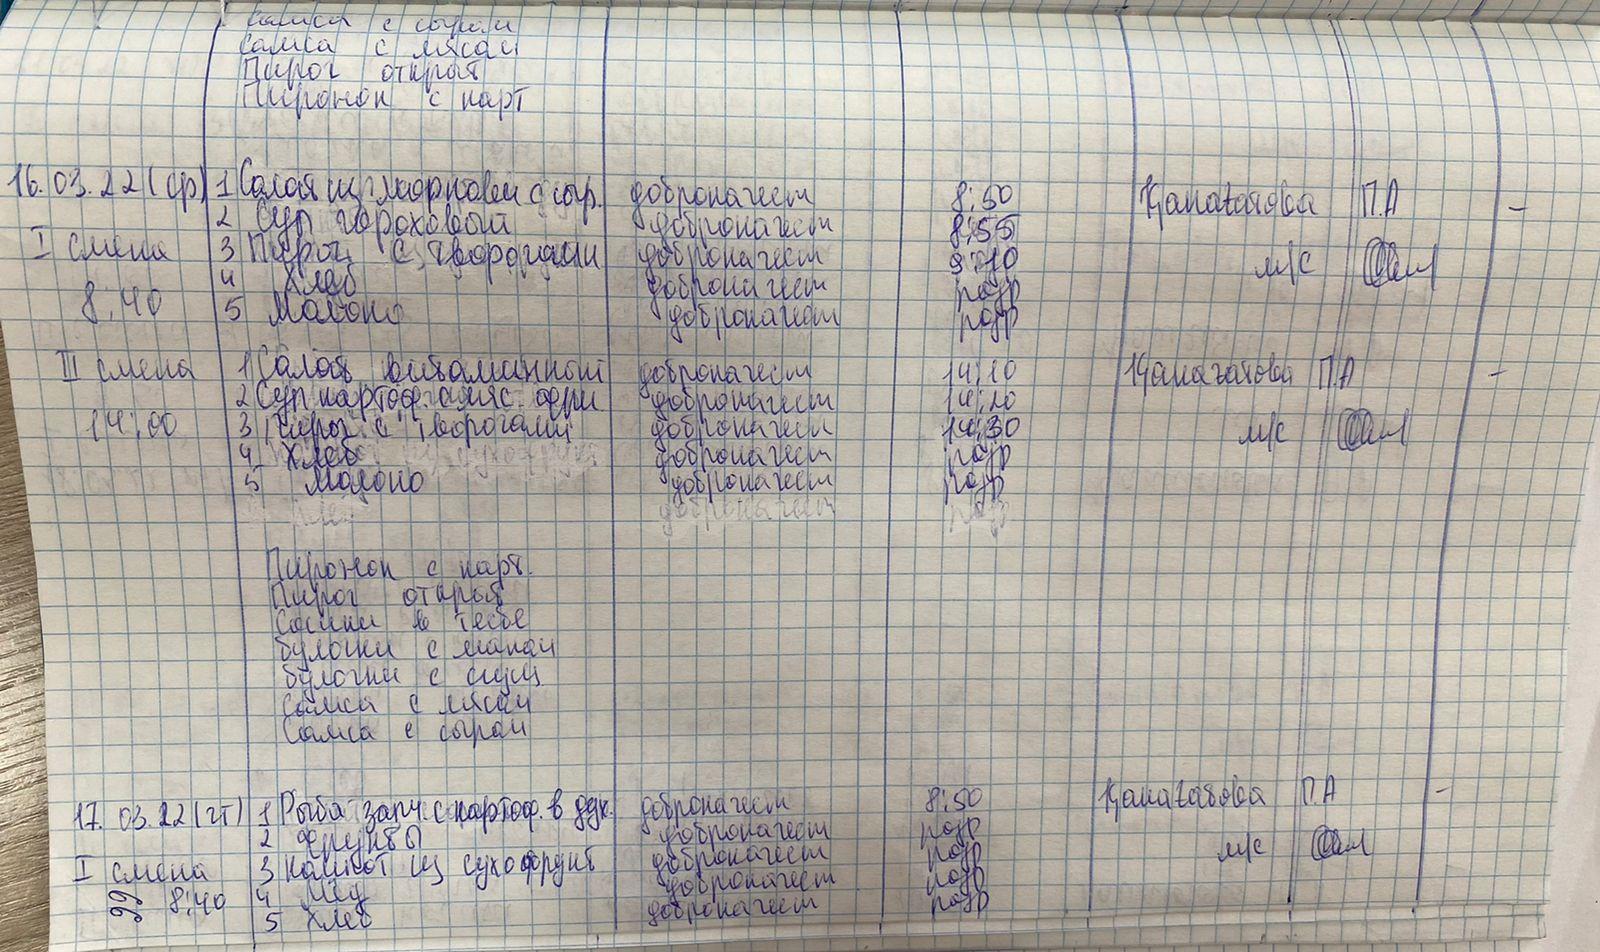 Самса с сыром
Самса с мясом
Пирог открыт
Пирожок с карт
16.03.22 (ср) 1 Салат из моркови с сыр. доброкачест 8:50 Канатаро́ва П.А -
2 Суп гороховый доброкачест 8:55
I смена 3 Пирог с творогом доброкачест 9:10 м/с
4 Хлеб доброкачест разр
8:40 5 Молоко доброкачест разр
II смена 1 Салат витаминный доброкачест 14:10 П.А -
2 Суп картоф. с мяс. фри доброкачест 14:20
14:00 3 Пирог с творогом доброкачест 14:30 м/с
4 Хлеб доброкачест разр
5 Молоко доброкачест разр
доброкачест разр
Пирожок с карт.
Пирог открыт
Сосиски в тесте
булочки с маком
булочки с сгущ
Самса с мясом
Самса с сыром
17.03.22 (чт) 1 Рыба запч. с картоф. в дух. доброкачест 8:50 П.А -
2 фрукты доброкачест разр
I смена 3 Компот из сухофрукт доброкачест разр м/с
8:40 4 Мёд доброкачест разр
5 Хлеб доброкачест разр